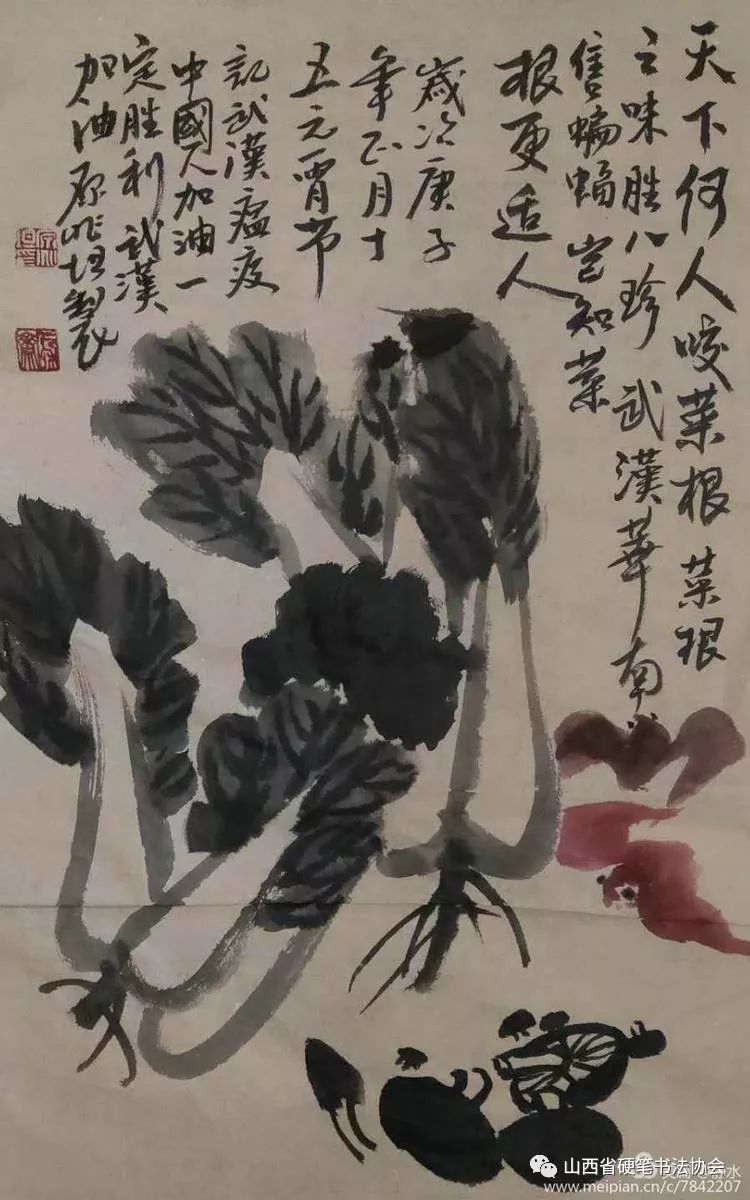 天下何人咬菜根菜根
之味胜八珍武漢華南
售蝙蝠岂知菜
根更适人
歲次庚子
年正月十
五元宵节
記武漢瘟疫
中國人加油一
定胜利武漢
加油原
山西省硬笔书法协会
www.meipian.cn/c/7842207